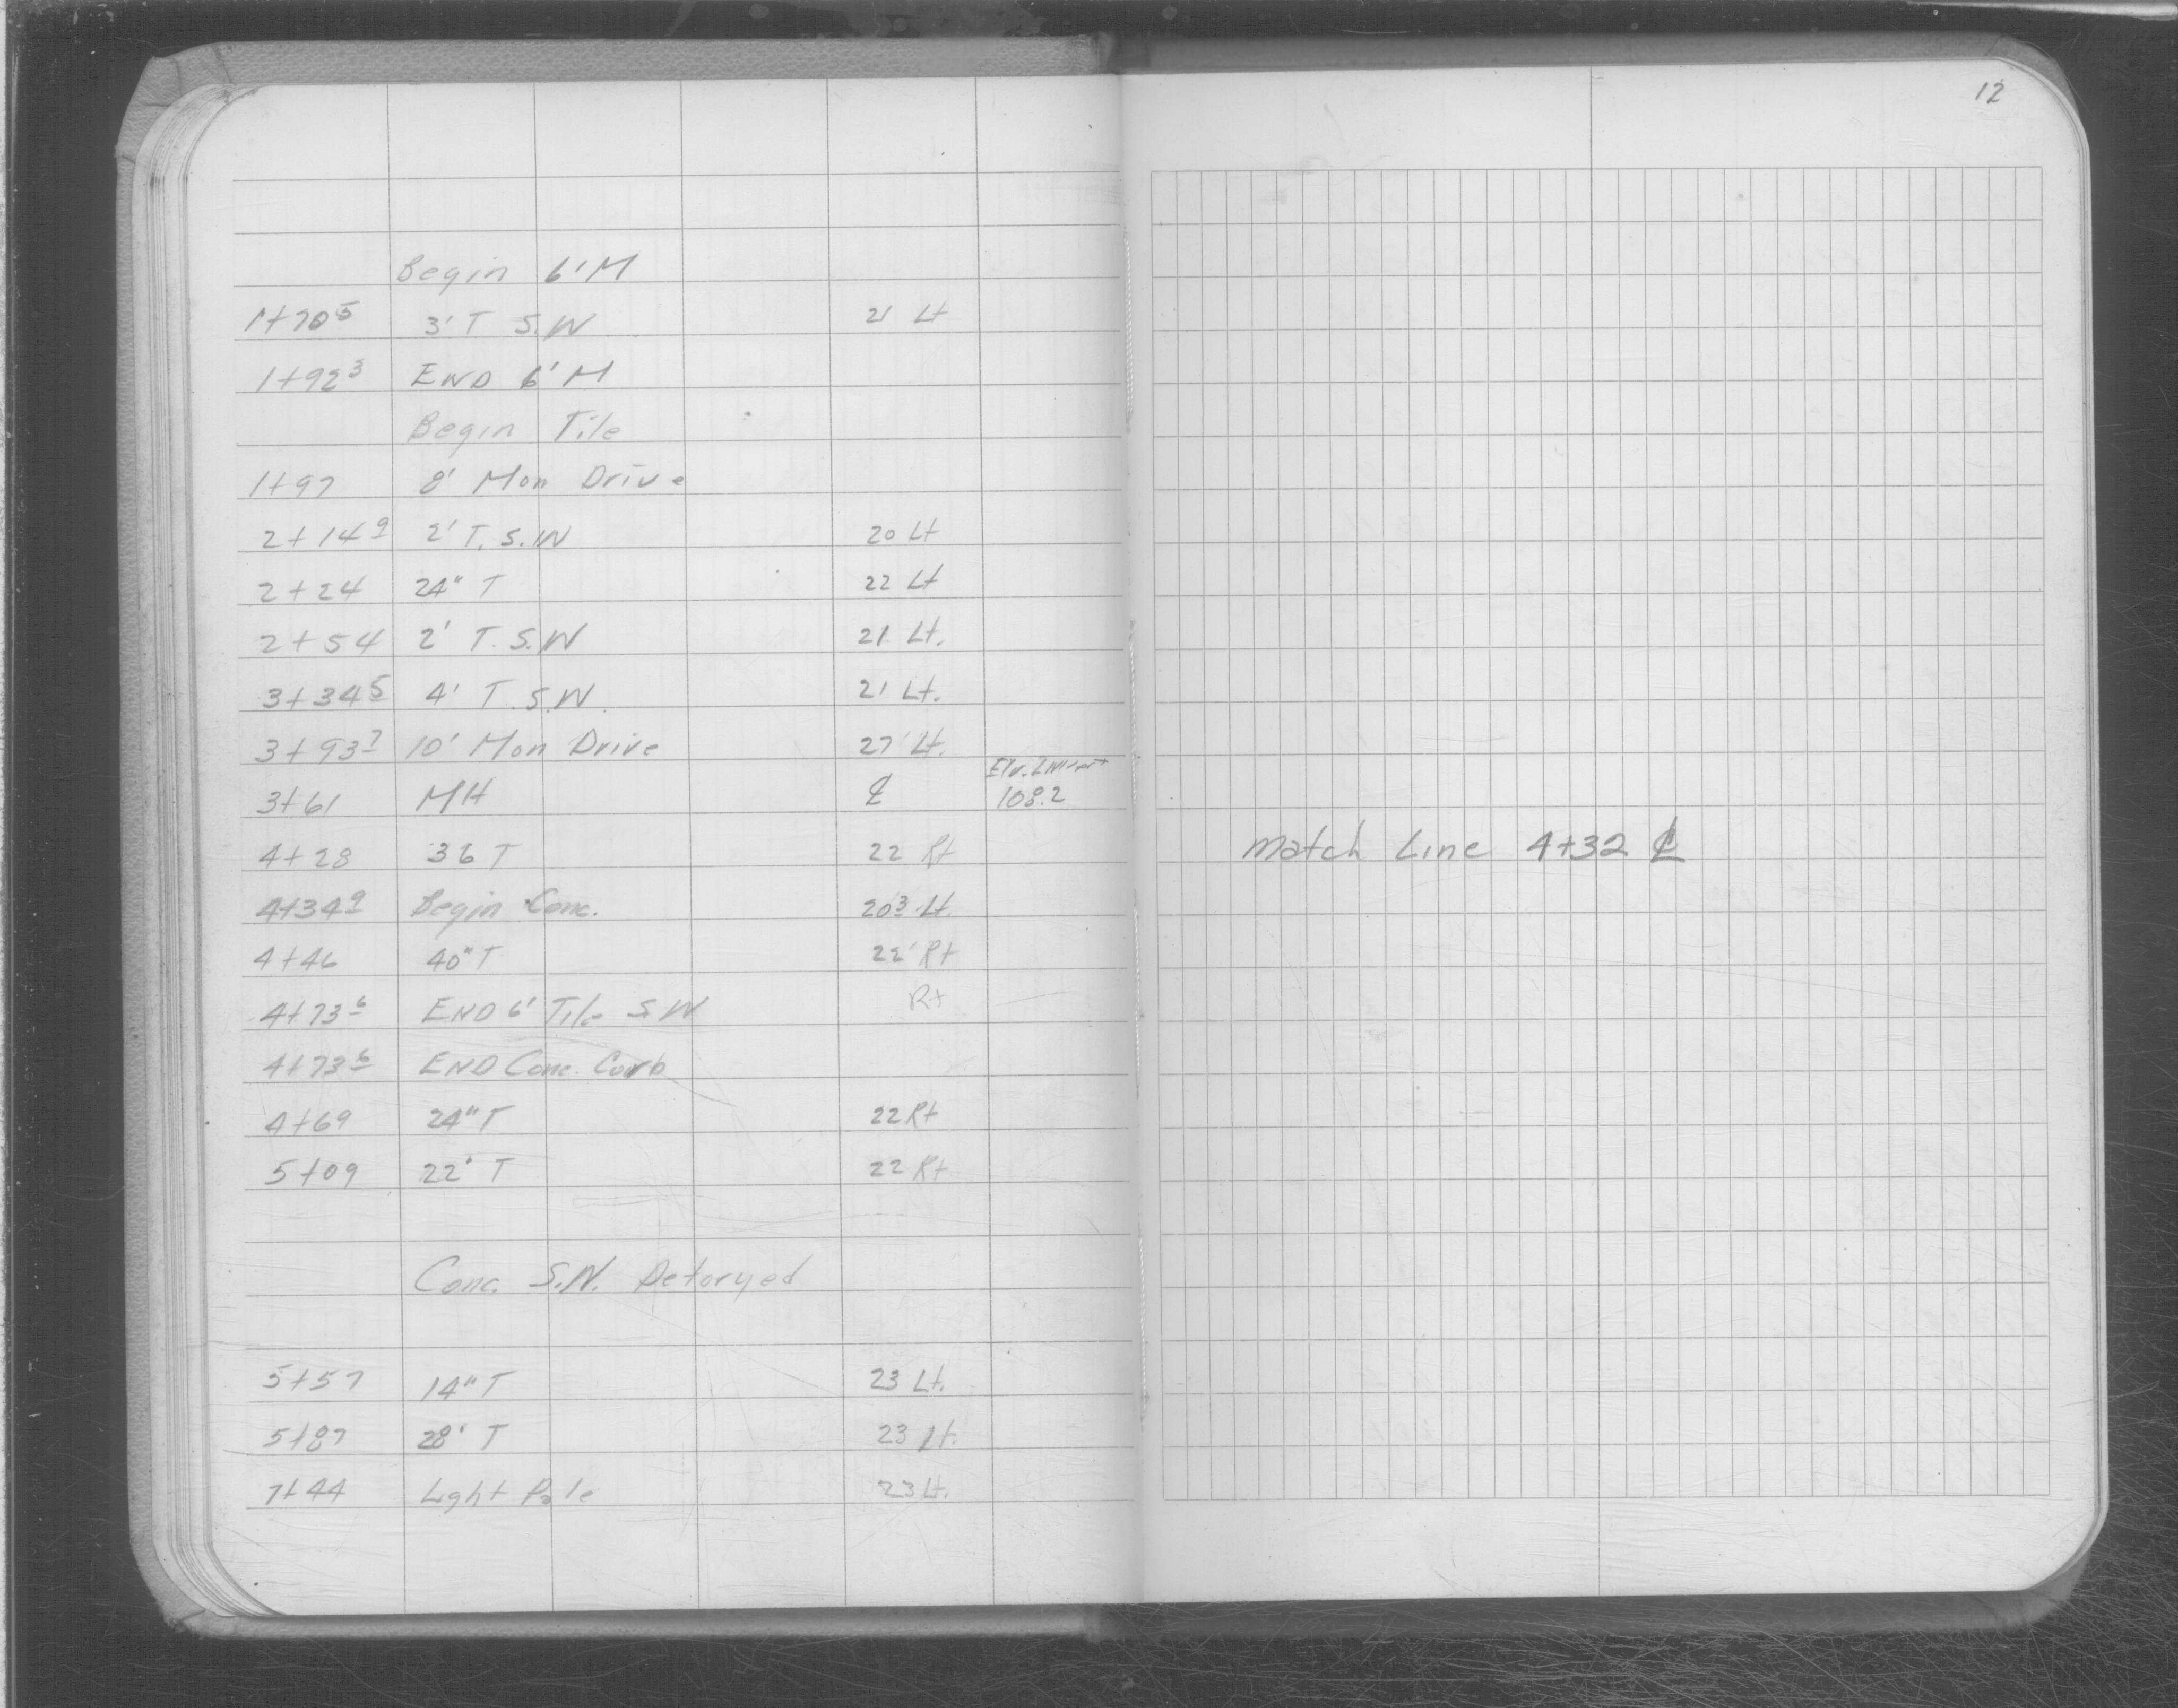 12
Begin 6' M
1+70⁵ 3' T S.W 21 Lt
1+92³ END 6' M
Begin Tile
1+97 8' Mon Drive
2+14⁹ 2' T. S.W 20 Lt
2+24 24" T 22 Lt
2+54 2' T. S.W 21 Lt.
3+34⁵ 4' T. S.W. 21 Lt.
3+93⁷ 10' Mon Drive 27' Lt.
Elv. Invert
3+61 MH ℄ 108.2
4+28 36 T 22 Rt
Match Line 4+32 ℄
4+34⁹ Begin Conc. 20³ Lt.
4+46 40" T 22' Rt
4+73⁶ END 6' Tile S.W Rt
4+73⁶ END Conc. Curb
4+69 24" T 22 Rt
5+09 22" T 22 Rt
Conc. S.W. Detoryed
5+57 14" T 23 Lt.
5+87 28" T 23 Lt.
7+44 Light Pole 23 Lt.